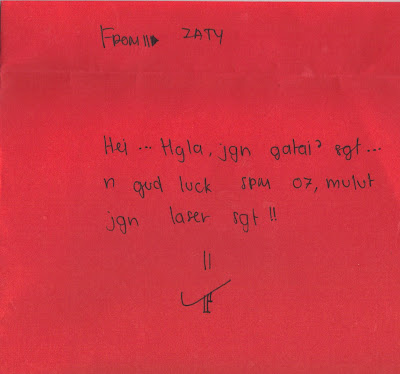 FROM ZATY
Hei ... Hgla, jgn gatai² sgt ...
n gud luck SPM 07, mulut
jgn laser sgt !!